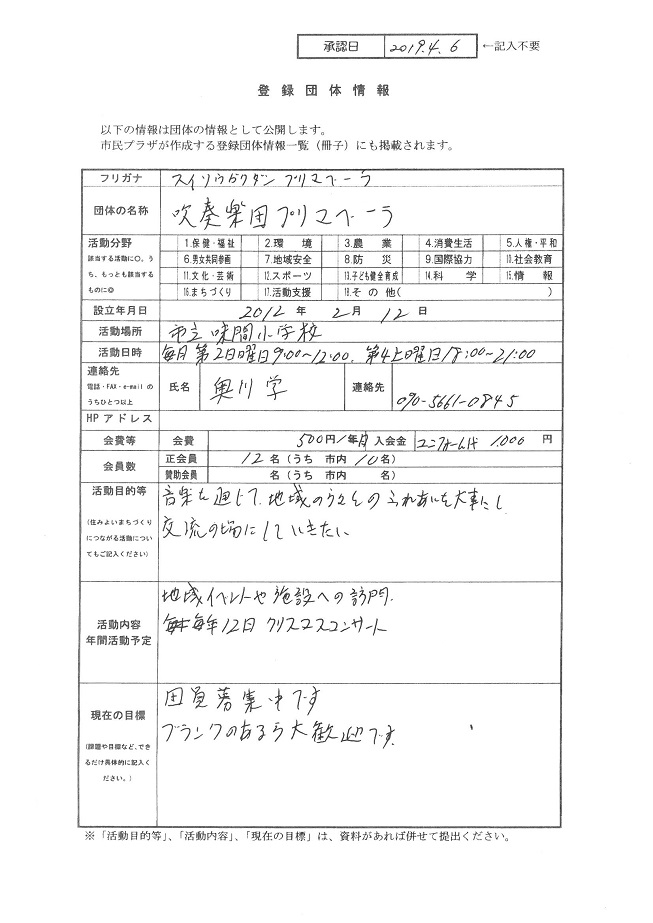 承認日 2019.4.6 ←記入不要
登録団体情報
以下の情報は団体の情報として公開します。
市民プラザが作成する登録団体情報一覧（冊子）にも掲載されます。
フリガナ スイソウガクダン プリマベーラ
団体の名称 吹奏楽団プリマベーラ
活動分野
該当する活動に○。うち、もっとも該当するものに◎
1.保健・福祉 2.環境 3.農業 4.消費生活 5.人権・平和
6.男女共同参画 7.地域安全 8.防災 9.国際協力 10.社会教育
11.文化・芸術 12.スポーツ 13.子ども健全育成 14.科学 15.情報
16.まちづくり 17.活動支援 18.その他( )
設立年月日 2012年 2月 12日
活動場所 市立味間小学校
活動日時 毎月第2日曜日9:00〜12:00. 第4土曜日18:00〜21:00
連絡先
電話・FAX・e-mailのうちひとつ以上
氏名 奥川学 連絡先 090-5661-0845
HPアドレス
会費等 会費 500円/年月 入会金 ユニフォーム代 1,000 円
会員数 正会員 12名（うち 市内 10名）
賛助会員 名（うち 市内 名）
活動目的等
（住みよいまちづくりにつながる活動についてもご記入ください）
音楽を通じて、地域の方々とのふれあいを大事にし
交流の場にしていきたい
活動内容
年間活動予定
地域イベントや施設への訪問.
毎年12月 クリスマスコンサート
現在の目標
（課題や目標など、できるだけ具体的に記入ください。）
団員募集中です
ブランクのある方大歓迎です.
※「活動目的等」、「活動内容」、「現在の目標」は、資料があれば併せて提出ください。